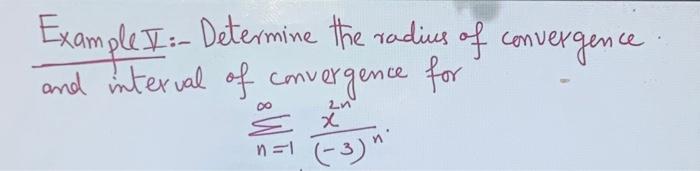 Example V:- Determine the radius of convergence.
and interval of convergence for
∞ Σ n=1 x^2n / (-3)^n.